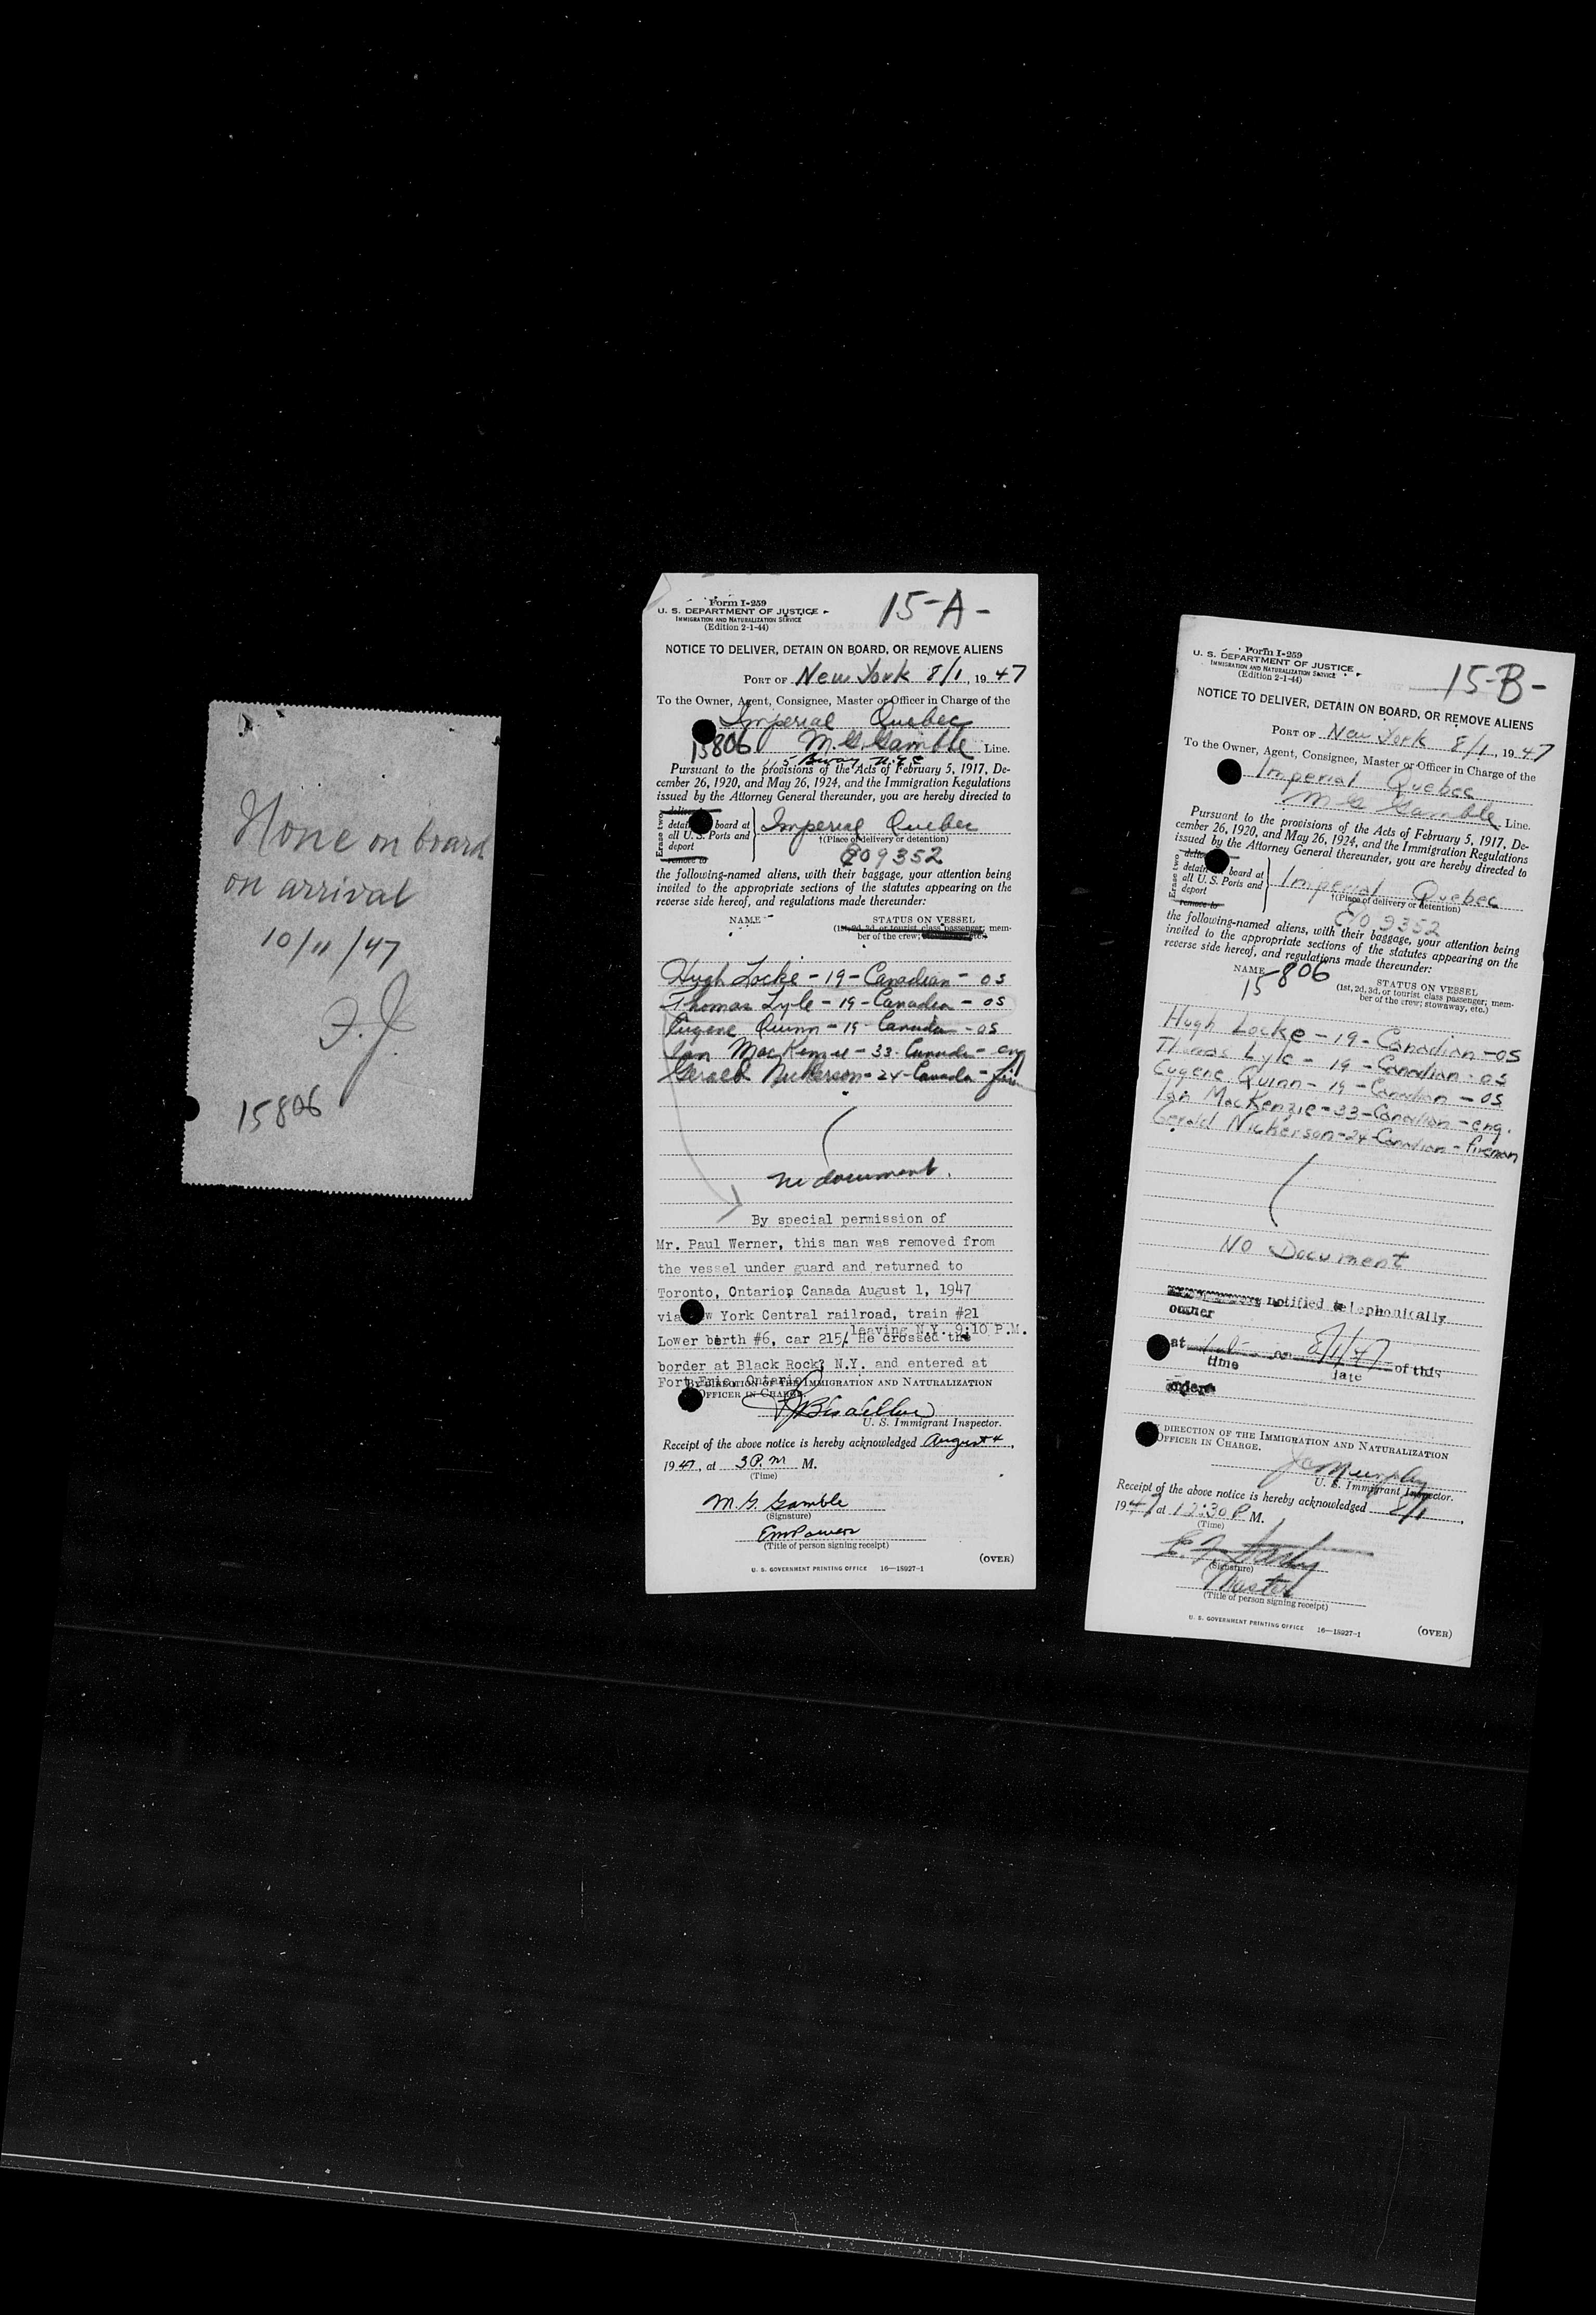 None on board
on arrival
10/11/47
F.J.
15806
Form I-259
U. S. DEPARTMENT OF JUSTICE
IMMIGRATION AND NATURALIZATION SERVICE
(Edition 2-1-44)
15-A-
NOTICE TO DELIVER, DETAIN ON BOARD, OR REMOVE ALIENS
PORT OF New York 8/1, 1947
To the Owner, Agent, Consignee, Master or Officer in Charge of the
Imperial Quebec
15806 M. G. Gamble Line.
Bway N.Y.C
Pursuant to the provisions of the Acts of February 5, 1917, De-
cember 26, 1920, and May 26, 1924, and the Immigration Regulations
issued by the Attorney General thereunder, you are hereby directed to
Erase two
deliver
detain board at
all U. S. Ports and
deport
remove to
Imperial Quebec
†(Place of delivery or detention)
809352
the following-named aliens, with their baggage, your attention being
invited to the appropriate sections of the statutes appearing on the
reverse side hereof, and regulations made thereunder:
NAME
STATUS ON VESSEL
(1st, 2d, 3d, or tourist class passenger; mem-
ber of the crew; etc.)
Hugh Locke - 19 - Canadian - OS
Thomas Lyle - 19 - Canadian - OS
Eugene Quinn - 19 - Canadian - OS
Ian MacKenzie - 33 - Canada - eng
Gerald Nickerson - 24 - Canada - fire
no document.
By special permission of
Mr. Paul Werner, this man was removed from
the vessel under guard and returned to
Toronto, Ontario, Canada August 1, 1947
via w York Central railroad, train #21
leaving N.Y. 9:10 P.M.
Lower birth #6, car 215. He crossed the
border at Black Rock, N.Y. and entered at
Fort Erie, Ontario
BY DIRECTION OF THE IMMIGRATION AND NATURALIZATION
OFFICER IN CHARGE.
U. S. Immigrant Inspector.
Receipt of the above notice is hereby acknowledged August 4,
1947, at 3 P.m M.
(Time)
M. G. Gamble
(Signature)
EmPowers
(Title of person signing receipt)
(OVER)
U. S. GOVERNMENT PRINTING OFFICE 16—18927-1
Form I-259
U. S. DEPARTMENT OF JUSTICE
IMMIGRATION AND NATURALIZATION SERVICE
(Edition 2-1-44)
15-B-
NOTICE TO DELIVER, DETAIN ON BOARD, OR REMOVE ALIENS
PORT OF New York 8/1, 1947
To the Owner, Agent, Consignee, Master or Officer in Charge of the
Imperial Quebec
M G Gamble Line.
Pursuant to the provisions of the Acts of February 5, 1917, De-
cember 26, 1920, and May 26, 1924, and the Immigration Regulations
issued by the Attorney General thereunder, you are hereby directed to
Erase two
deliver
detain board at
all U. S. Ports and
deport
remove to
Imperial Quebec
†(Place of delivery or detention)
9352
the following-named aliens, with their baggage, your attention being
invited to the appropriate sections of the statutes appearing on the
reverse side hereof, and regulations made thereunder:
NAME
15806
STATUS ON VESSEL
(1st, 2d, 3d, or tourist class passenger; mem-
ber of the crew; stowaway, etc.)
Hugh Locke - 19 - Canadian - OS
Thomas Lyle - 19 - Canadian - OS
Eugene Quinn - 19 - Canadian - OS
Ian MacKenzie - 33 - Canadian - eng.
Gerald Nickerson - 24 - Canadian - fireman
No Document
notified telephonically
owner
at on 8/1/47 of this
time date
order
BY DIRECTION OF THE IMMIGRATION AND NATURALIZATION
OFFICER IN CHARGE.
J C Murphy
U. S. Immigrant Inspector.
Receipt of the above notice is hereby acknowledged 8/1,
1947 at 12:30 P. M.
(Time)
(Signature)
Master
(Title of person signing receipt)
U. S. GOVERNMENT PRINTING OFFICE 16—18927-1
(OVER)